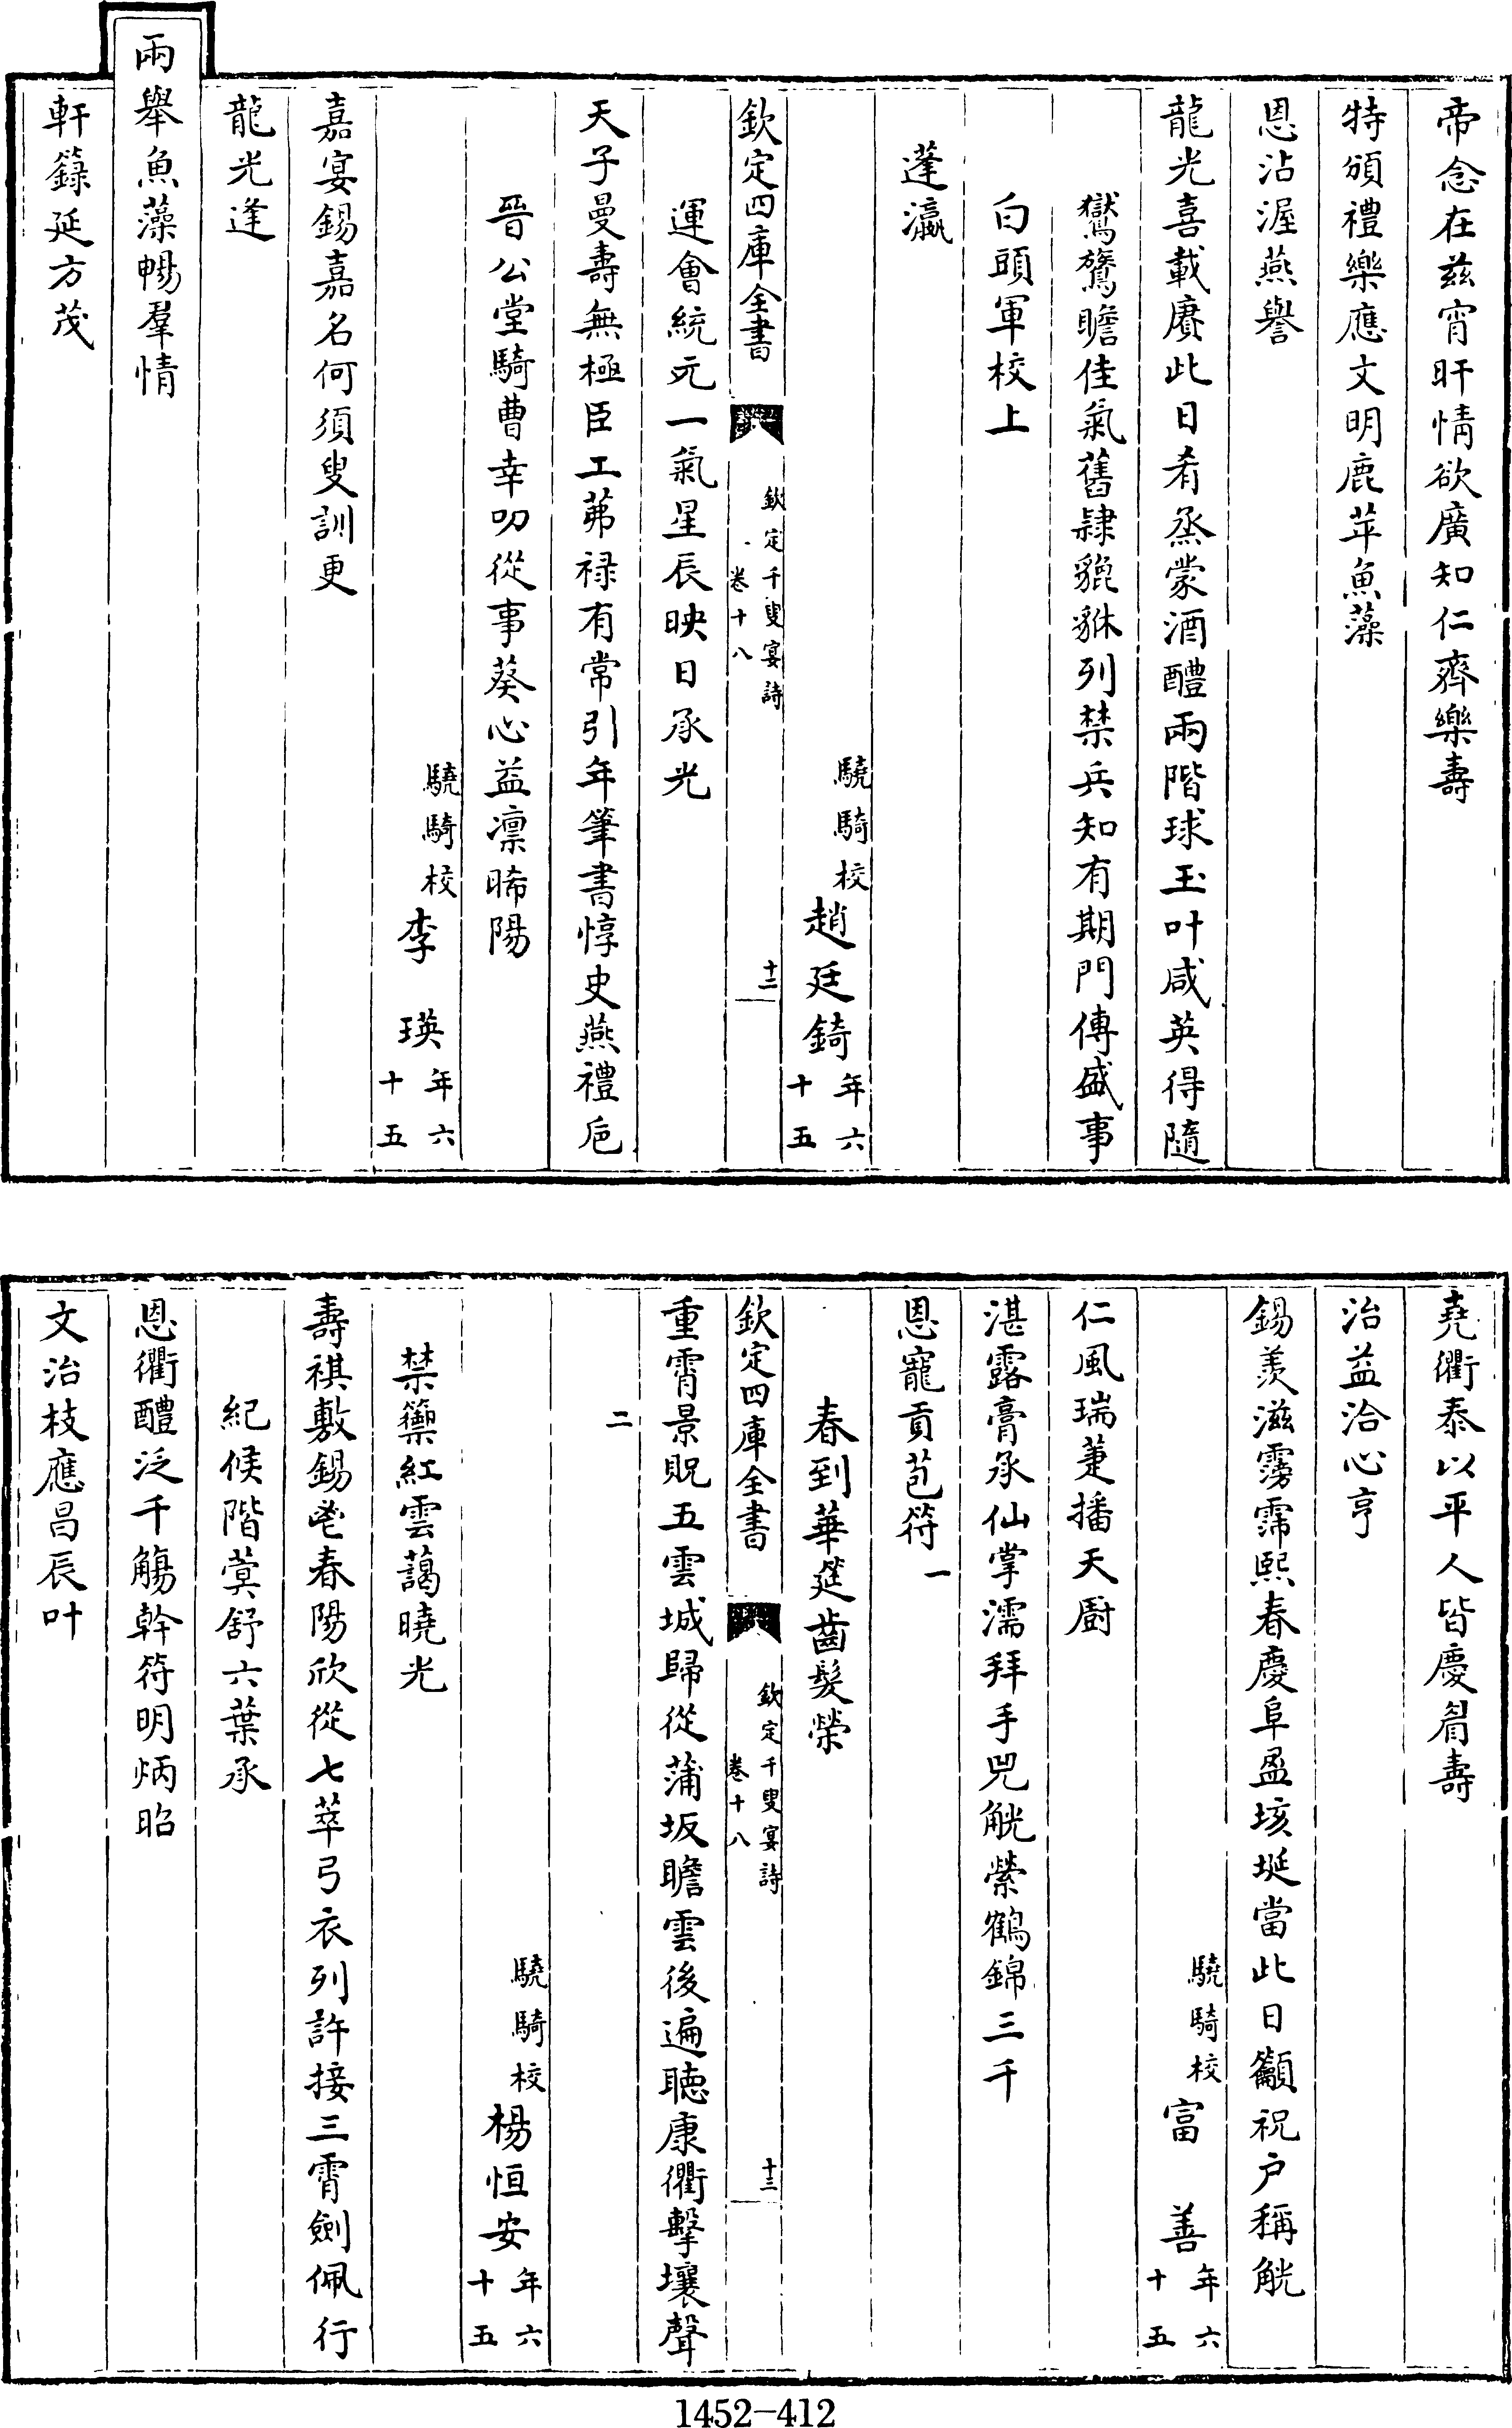 帝念在兹宵旰情欲廣知仁齊樂壽
特頒禮樂應文明鹿苹魚藻
恩沾渥燕譽
龍光喜載賡此日肴烝蒙酒醴兩階球玉叶咸英得隨
鸑鷟瞻佳氣舊隷貔貅列禁兵知有期門傳盛事
白頭軍校上
蓬瀛
驍騎校趙廷錡年六十五
欽定四庫全書
欽定千叟宴詩
卷十八
十二
運會統元一氣星辰映日承光
天子曼壽無極臣工茀禄有常引年筆書惇史燕禮巵
晉公堂騎曹幸叨從事葵心益凛晞陽
驍騎校李瑛年六十五
嘉宴錫嘉名何須叟訓更
龍光逢
兩舉魚藻暢羣情
軒籙延方茂
堯衢泰以平人皆慶眉壽
治益洽心亨
錫羨滋霶霈熙春慶阜盈垓埏當此日籲祝户稱觥
驍騎校富善年六十五
仁風瑞萐播天厨
湛露膏承仙掌濡拜手兕觥縈鶴錦三千
恩寵貢苞符一
春到華筵齒髮榮
欽定四庫全書
欽定千叟宴詩
卷十八
十三
重霄景貺五雲城歸從蒲坂瞻雲後遍聽康衢擊壤聲
二
驍騎校楊恒安年六十五
禁籞紅雲藹曉光
壽祺敷錫鬯春陽欣從七萃弓衣列許接三霄劍佩行
紀候階蓂舒六葉承
恩衢醴泛千觴幹符明炳昭
文治枝應昌辰叶
1452-412